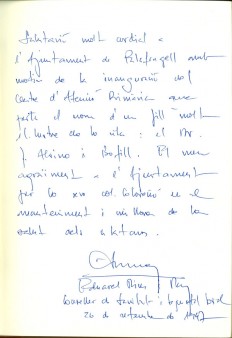 Salutació molt cordial a
l'Ajuntament de Palafrugell amb
motiu de la inauguració del
Centre d'Atenció Primària que
porta el nom d'un fill molt
il·lustre de la vila : el Dr.
J. Alsina i Bofill. El meu
agraïment a l'Ajuntament
per la seva col·laboració en el
manteniment i millora de la
salut dels ciutadans.
Eduard Rius i Pey
Conseller de Sanitat i Seguretat Social
26 de setembre de 1997